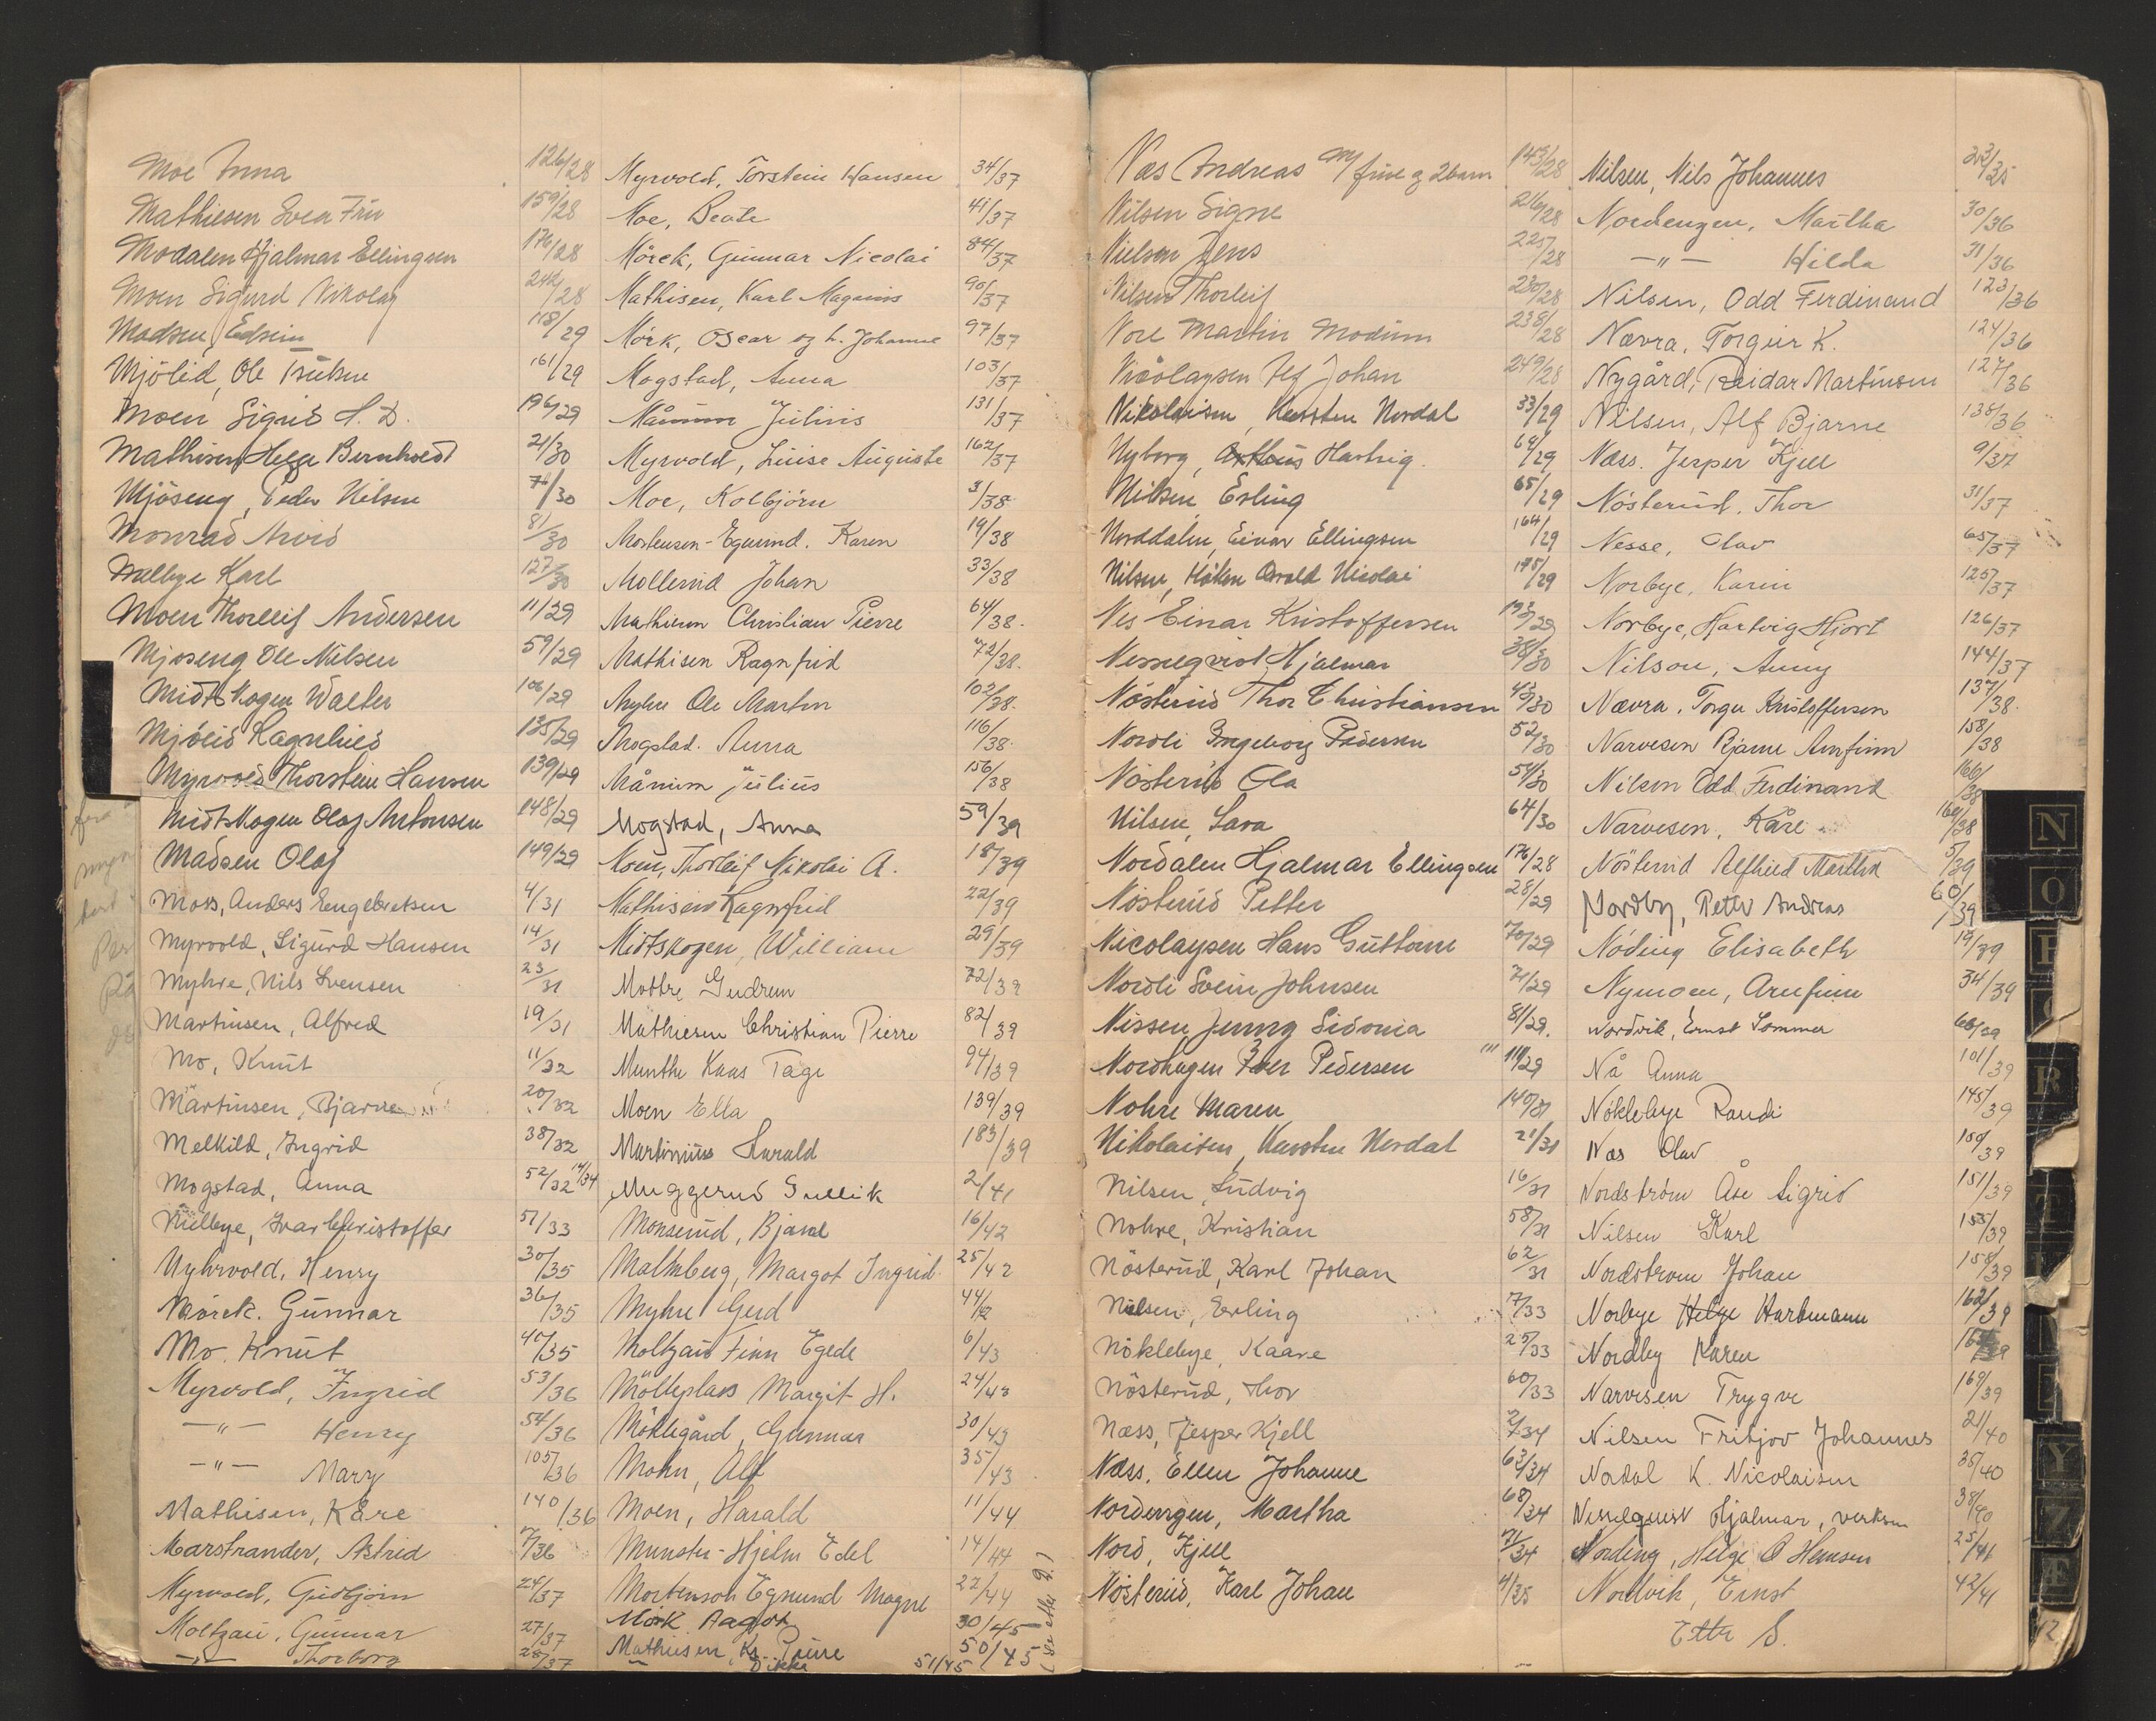 Moe Anna 126/28
Mathiesen Svea Fru 159/28
Modalen Hjalmar Ellingsen 176/28
Moen Sigurd Nikolay 242/28
Madsen, Edvin 118/29
Mjölid, Ole 161/29
Moen Sigrid H. D. 196/29
Mathisen Helge Bernhard 21/30
Mjöseng, Peder Nilsen 71/30
Monrad Arvid 81/30
Melbye Karl 127/30
Moen Thorleif Andersen 11/29
Mjöseng Ole Nilsen 59/29
Midtskogen Walter 106/29
Mjölid Ragnhild 135/29
Myrvold Thorstein Hansen 139/29
Midtskogen Olaf Antonsen 148/29
Madsen Olaf 149/29
Moss, Anders Engebretsen 4/31
Myrvold, Sigurd Hansen 14/31
Myhre, Nils Svensen 23/31
Martinsen, Alfred 19/31
Mo, Knut 11/32
Martinsen, Bjarne 20/32
Melkild, Ingrid 38/32
Mogstad, Anna 52/32 14/34
Melbye, Ivar Christoffer 51/33
Myhrvold, Henry 30/35
Mörck. Gunnar 36/35
Mo. Knut 40/35
Myrvold, Ingrid 53/36
—"— Henry 54/36
—"— Mary 105/36
Mathisen, Kåre 140/36
Marstrander, Astrid 7/36
Myrvold, Gudbjörn 24/37
Moltzau, Gunnar 27/37
—"— Thorborg 28/37
Myrvold, Torstein Hansen 34/37
Moe, Beate 41/37
Mörck, Gunnar Nicolai 84/37
Mathisen, Karl Magnus 90/37
Mörk, Oscar og h. Johanne 97/37
Mogstad, Anna 103/37
Månum Julius 131/37
Myrvold, Luise Auguste 162/37
Moe, Kolbjörn 3/38
Mortensen-Egnund. Karen 19/38
Mollerud Johan 33/38
Mathiesen Christian Pierre 64/38.
Mathisen Ragnfrid 72/38.
Myhre Ole Martin 102/38.
Mogstad. Anna 116/38.
Månum Julius 156/38
Mogstad, Anna 59/39
Moen, Thorleif Nikolai A. 18/39
Mathisen Ragnfrid 22/39
Midtskogen, William 29/39
Mottre Gudrun 72/39
Mathiesen Christian Pierre 82/39
Munthe Kaas Tage 94/39
Moen Ella 139/39
Martinius Harald 183/39
Muggerud Gullik 2/41
Monserud, Bjarne 16/42
Malmberg, Margot Ingrid 25/42
Myhre Gerd 44/42
Moltzau Finn Egede 6/43
Mölleplass Margit H. 24/43
Möllegård, Gunnar 30/43
Mohn, Alf 35/43
Moen, Harald 11/44
Munster-Hjelm Edel 14/44
Mortenson Egnund Magne 22/44
Mörk Aagot 30/45
Mathiesen, Kr. Pierre 50/45
51/45
(Se etter Q.)
Næs Andreas m/ frue og 2 barn 143/28
Nilsen Signe 216/28
Nielsen Jens 225/28
Nilsen Thorleif 230/28
Nore Martin Modum 238/28
Nicolaysen Alf Johan 249/28
Nikolaisen, Karsten Nordal 33/29
Nyborg, Hartvig. 64/29
Nilsen, Erling 65/29
Norddalen, Einar Ellingsen 164/29
Nilsen, Håkon Arvald Nicolai 175/29
Nes Einar Kristoffersen 193/29
Nesselqvist Hjalmar 38/30
Nösterud Thor Christiansen 43/30
Nordli Ingeborg Pedersen 52/30
Nösterud Ola 54/30
Nilsen, Sara 64/30
Nordalen Hjalmar Ellingsen 176/28
Nösterud Petter 28/29
Nicolaysen Hans Guttorm 70/29
Nordli Svein Johnsen 71/29
Nissen Jenny Sidonia 81/29.
Nordhagen Iver Pedersen 111/29
Nohre Maren 140/31
Nikolaisen, Karsten Nordal 21/31
Nilsen, Ludvig 16/31
Nohre, Kristian 58/31
Nösterud, Karl Johan 62/31
Nilsen, Erling 7/33
Nöklebye, Kaare 25/33
Nösterud, Thor 60/33
Næss, Jesper Kjell 2/34
Næss, Ellen Johanne 63/34
Nordengen, Martha 68/34
Nord, Kjell 71/34
Nösterud, Karl Johan 4/35
Nilsen, Nils Johannes 23/35
Nordengen, Martha 30/36
—"— Hilda 31/36
Nilsen, Odd Ferdinand 123/36
Nævra, Torgeir K. 124/36
Nygård, Reidar Martinsen 127/36
Nilsen, Alf Bjarne 138/36
Næss. Jesper Kjell 9/37
Nösterud, Thor 31/37
Nesse, Olav 65/37
Norbye, Karin 125/37
Norbye, Hartvig Hjort 126/37
Nilson, Anny 144/37
Nævra, Torger Kristoffersen 137/38.
Narvesen Bjarne Arnfinn 158/38
Nilsen Odd Ferdinand 166/38
Narvesen, Kåre 160/38
Nösterud Alfhild Martha 5/39
Nordby, Petter Andreas 60/39
Nöding Elisabeth 19/39
Nymoen, Arnfinn 34/39
Nordvik, Ernst Sommer 66/39
Nå Anna 101/39
Nöklebye Randi 145/39
Næs Olav 150/39
Nordström Åse Sigrid 151/39
Nilsen Karl 155/39
Nordstrom Johan 158/39
Norbye Helge Hartmann 162/39
Nordby Karen
Narvesen Trygve 169/39
Nilsen Fritjov Johannes 21/40
Nordal K. Nicolaisen 35/40
Nesselquist Hjalmar, verksm 38/40
Nording, Helge O Hansen 25/41
Nordvik, Ernst 42/41
Etter S.
N
O
R
Y
Z
Æ